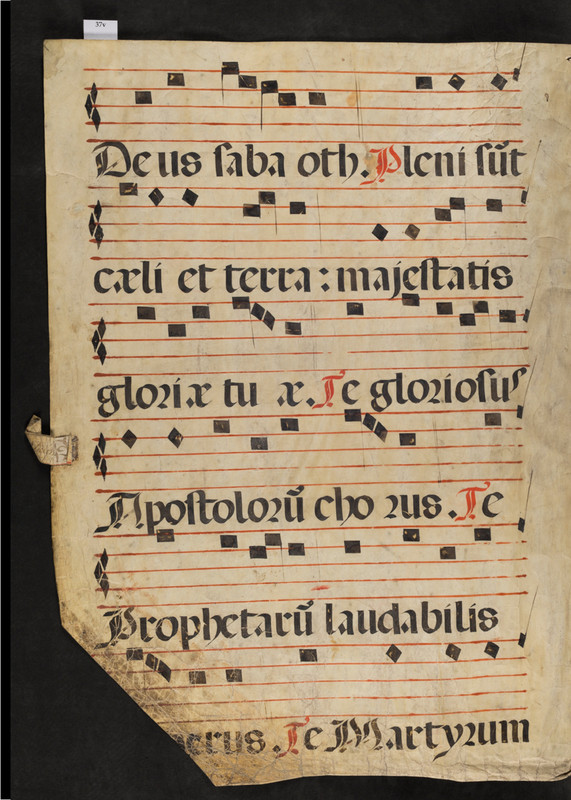 37v
De us ſaba oth. Pleni ſũt
cæli et terra : majeſtatis
gloriæ tu æ. Te glorioſus
Apoſtolorũ cho rus. Te
Prophetarũ laudabilis
Te Martyrum